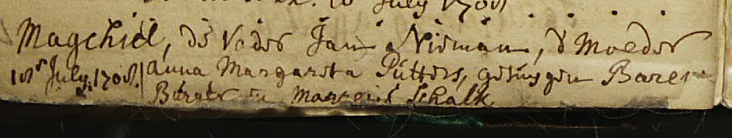 10 July 1708
Magchiel, de Vader Jan Nieman, d' Moeder
18e July. 1708. Anna Margareta Putters, getuygen Baren
Burger en Schalk.